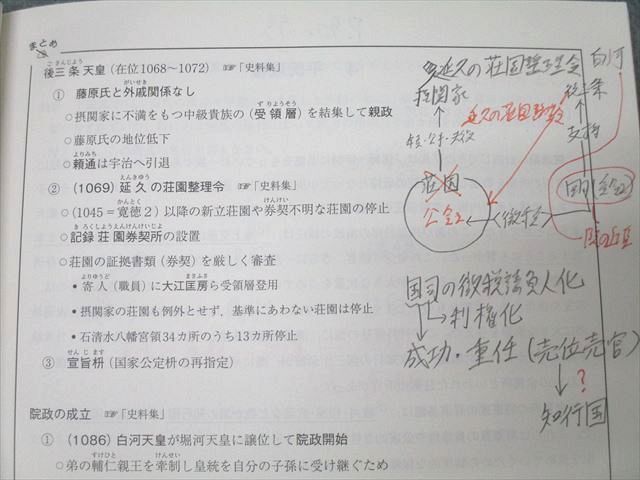 まとめ
後三条天皇(在位1068～1072) ☞「史料集」
① 藤原氏と外戚関係なし
○摂関家に不満をもつ中級貴族の(受領層)を結集して親政
○藤原氏の地位低下
○頼通は宇治へ引退
②(1069)延久の荘園整理令 ☞「史料集」
○(1045＝寛徳2)以降の新立荘園や券契不明な荘園の停止
○記録荘園券契所の設置
○荘園の証拠書類(券契)を厳しく審査
・寄人(職員)に大江匡房ら受領層登用
・摂関家の荘園も例外とせず、基準にあわない荘園は停止
・石清水八幡宮領34カ所のうち13カ所停止
③ 宣旨枡(国家公定枡の再指定)
院政の成立 ☞「史料集」
①(1086)白河天皇が堀河天皇に譲位して院政開始
○弟の輔仁親王を牽制し皇統を自分の子孫に受け継ぐため
延久の荘園整理令
白河
摂関家
後三条
支持
荘園
公領
国司(受領)
国司の徴税請負人化
利権化
成功・重任(売位売官)
?
知行国